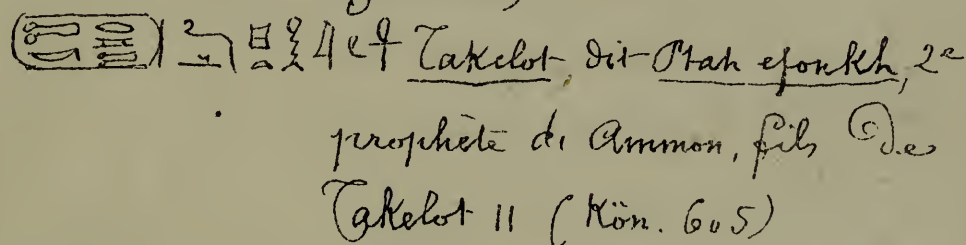 Takelot, dit Ptah efonkh, 2e
prophète d'Ammon, fils De
Takelot II (Kön. 605)